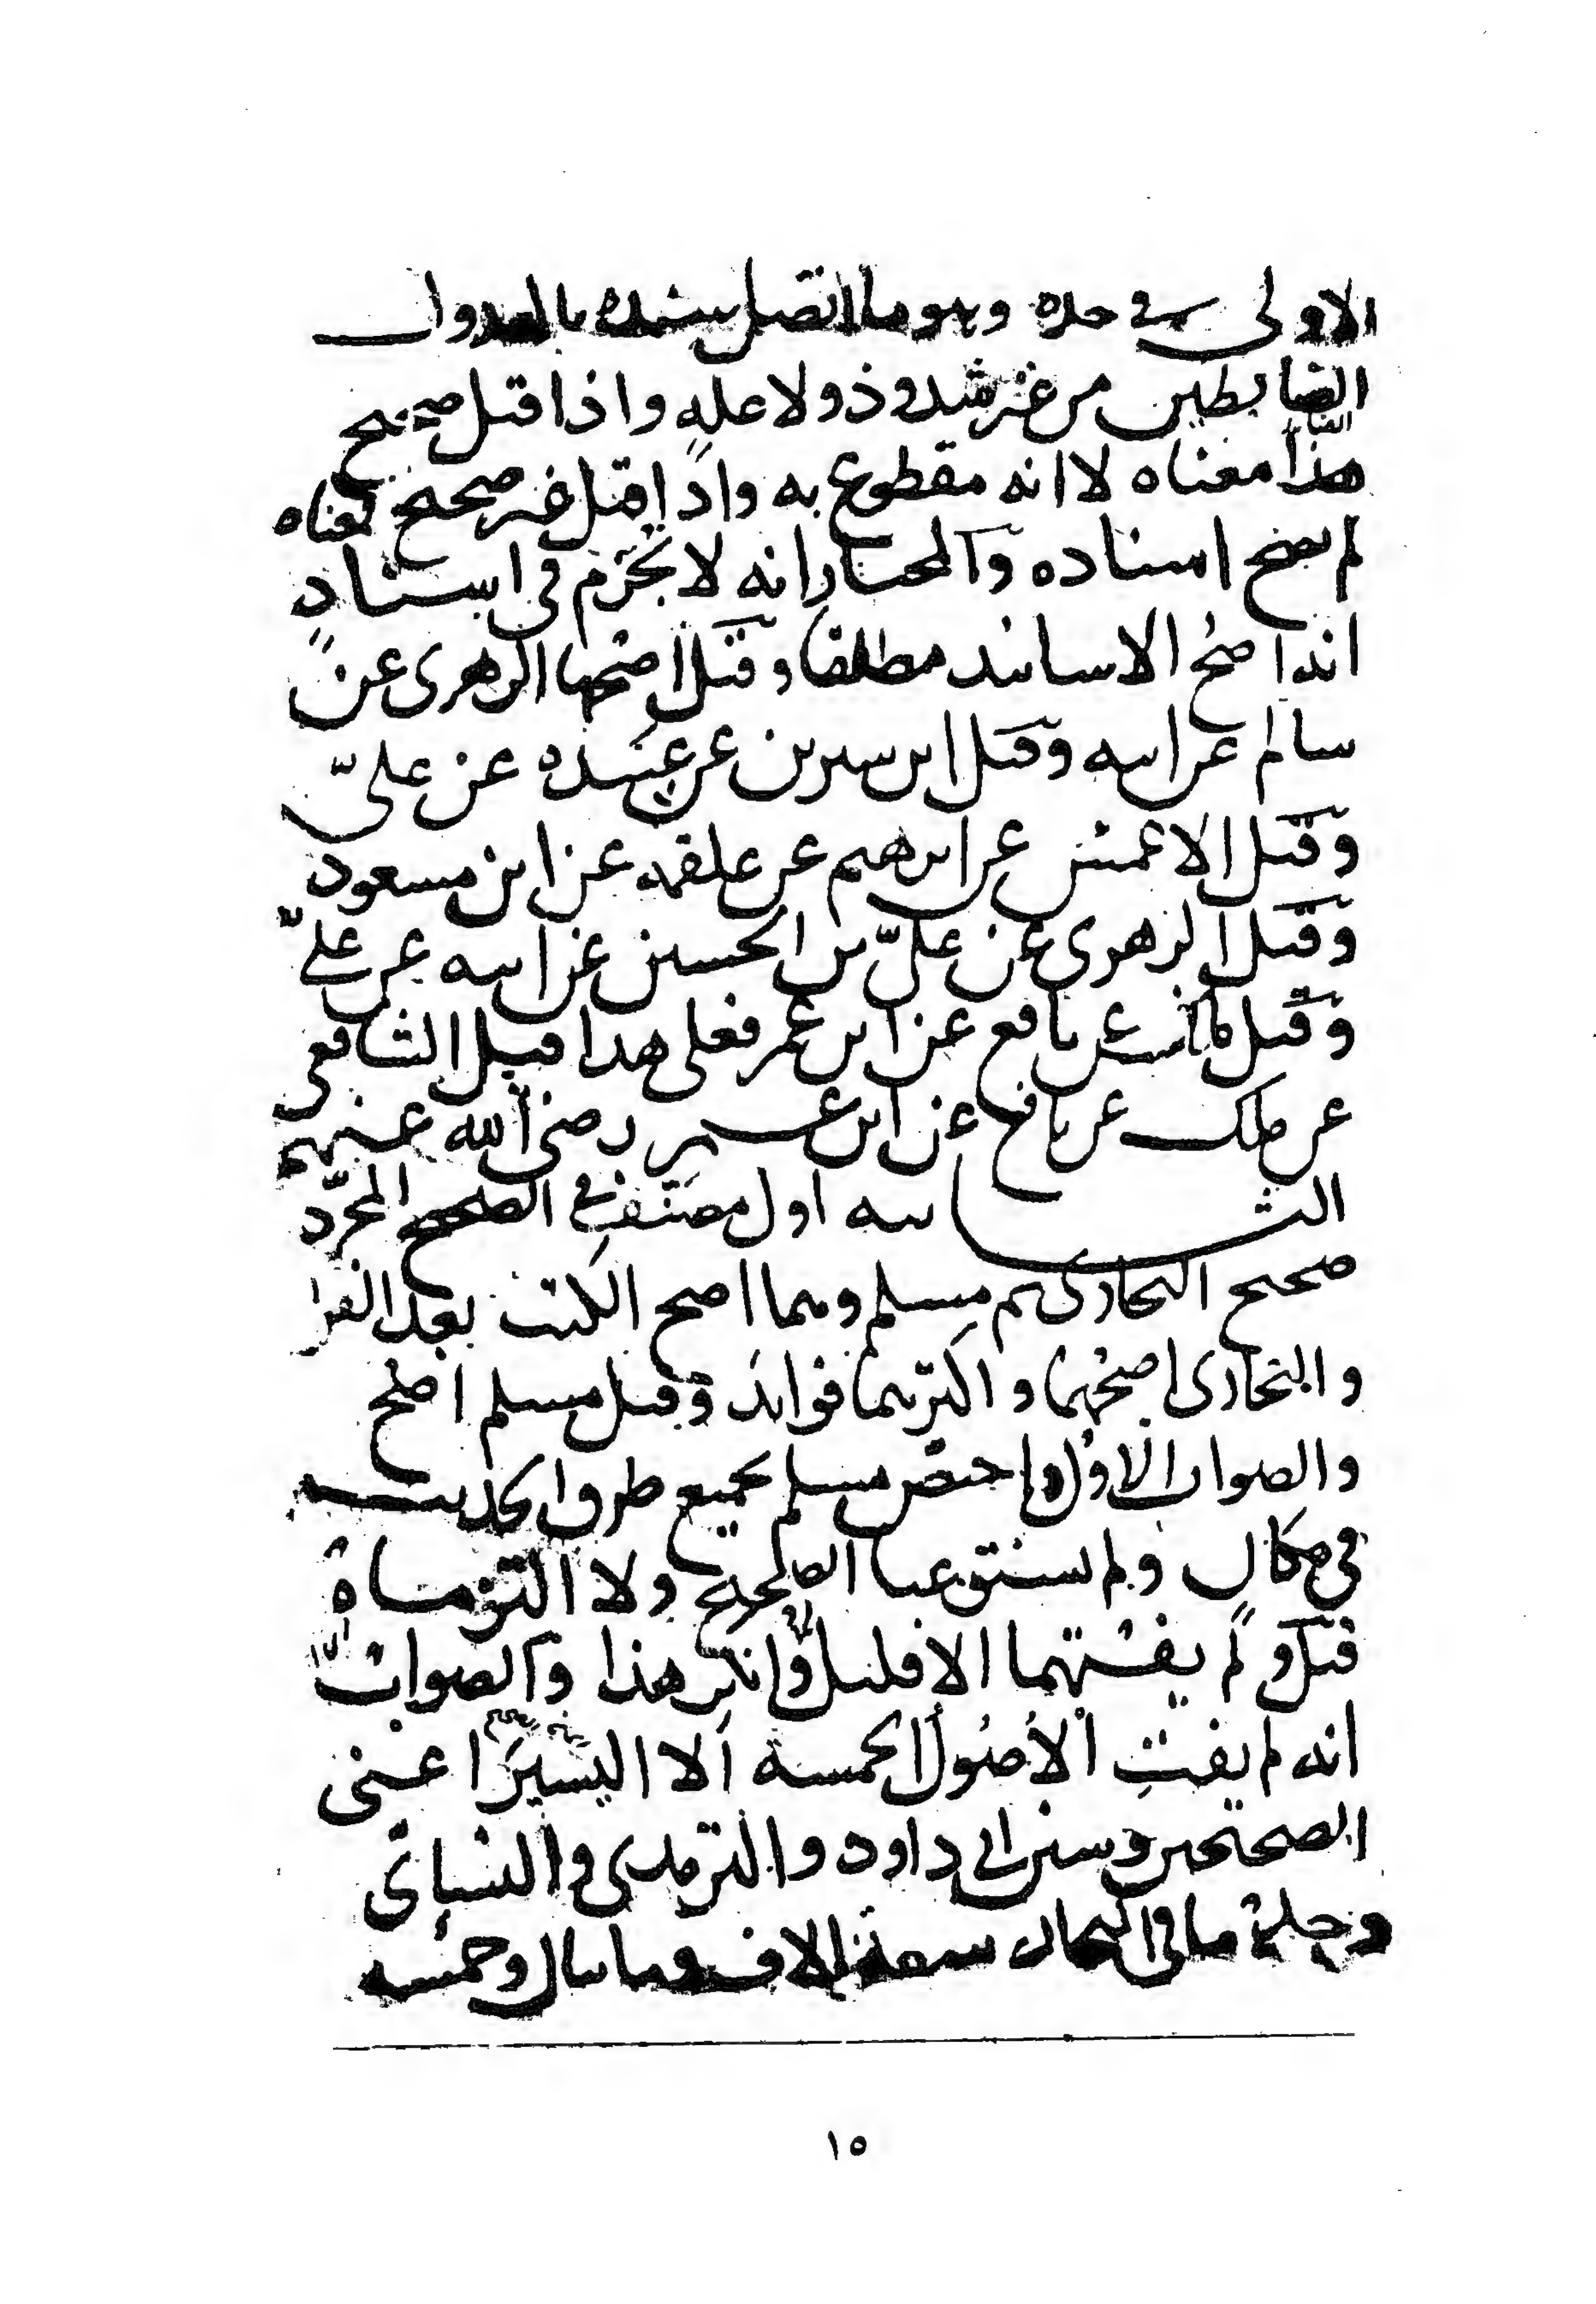 الاولى في حده وهو ما اتصل سنده بالعدول
الضابطين من غير شذوذ ولا علة واذا قيل صحيح
هذا معناه لا انه مقطوع به واذا قيل غير صحيح فمعناه
لم يصح اسناده والمختار انه لا يجزم في اسناد
انه اصح الاسانيد مطلقا وقيل اصحها الزهرى عن
سالم عن ابيه وقيل ابن سيرين عن عبيدة عن علىّ
وقيل الاعمش عن ابرهيم عن علقمة عن ابن مسعود
وقيل الزهرى عن علىّ بن الحسين عن ابيه عن علىّ
وقيل مالك عن نافع عن ابن عمر فعلى هذا قيل الشافعى
عن ملك عن نافع عن ابن عمر رضى الله عنهم
الثانيه اول مصنف في الصحيح المجرّد
صحيح البخارى ثم مسلم وهما اصح الكتب بعد القران
والبخارى اصحهما واكثرهما فوائد وقيل مسلم اصح
والصواب الاول واختص مسلم بجميع طرق الحديث
في مكان ولم يستوعبا الصحيح ولا التزماه
قيل ولم يفتهما الا قليل وانكر هذا والصواب
انه لم يفت الاُصُول الخمسة الا اليسير اعنى
الصحيحين وسنن ابى داود والترمذى والنسائى
وجملة ما في البخارى سبعة الاف ومايتان وخمسه
١٥